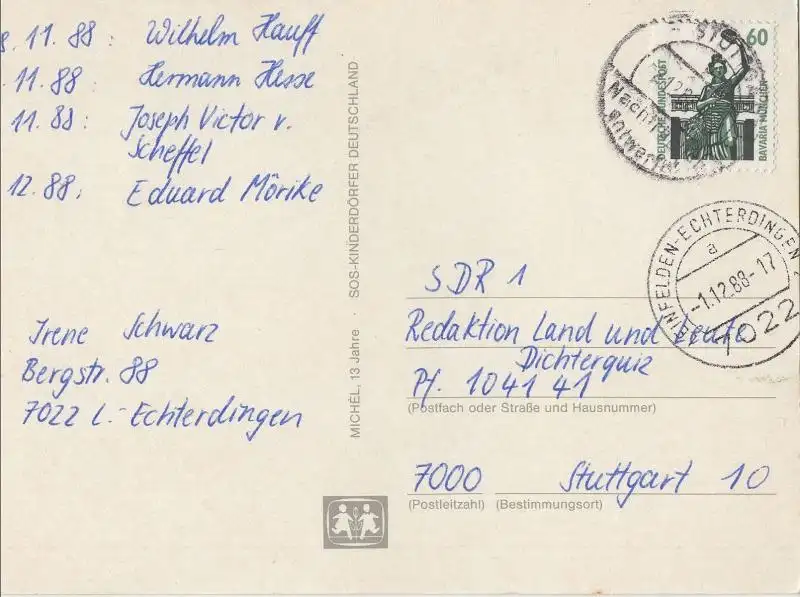 8. 11. 88: Wilhelm Hauff
. 11. 88: Hermann Hesse
11. 88: Joseph Victor v.
Scheffel
12. 88: Eduard Mörike
Irene Schwarz
Bergstr. 88
7022 L.-Echterdingen
MICHÈL, 13 Jahre · SOS-KINDERDÖRFER DEUTSCHLAND
60
DEUTSCHE BUNDESPOST
BAVARIA MÜNCHEN
INFELDEN-ECHTERDINGEN 2
a
-1.12.88-17
7022
SDR 1
Redaktion Land und Leute
Dichterquiz
Pf. 1041 41
(Postfach oder Straße und Hausnummer)
7000 Stuttgart 10
(Postleitzahl) (Bestimmungsort)